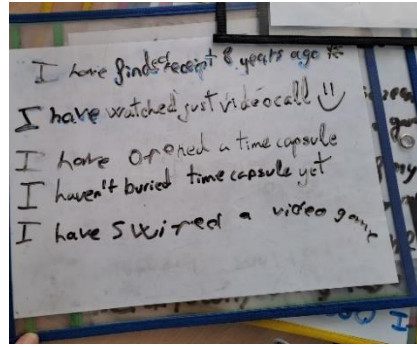 I have finds receipt 8 years ago
I have watched just videocall
I have opened a time capsule
I haven't buried time capsule yet
I have swired a video game